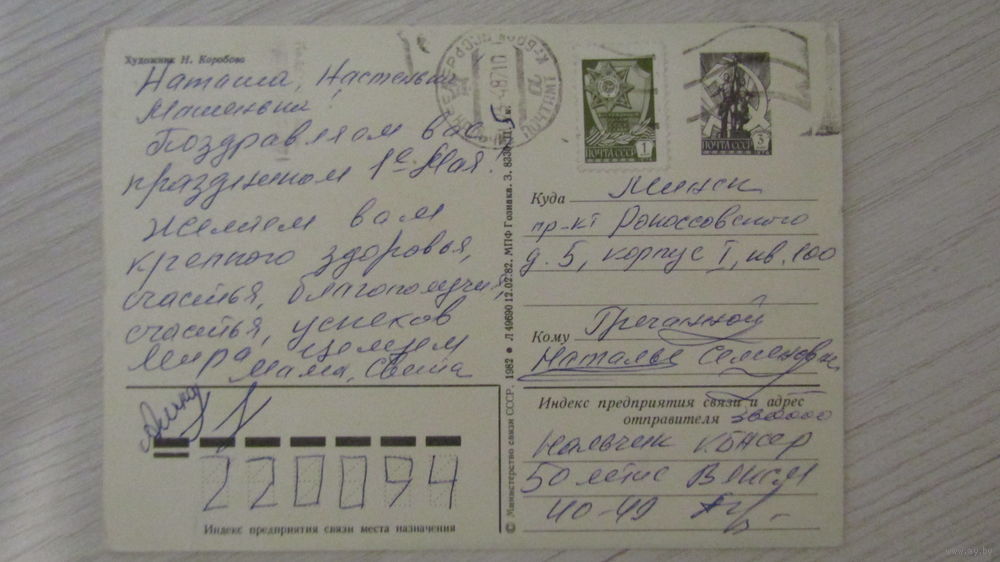 Художник Н. Коробова
Наташа, Настенька
Машенька!
Поздравляем вас
праздником 1е Мая!
Желаем вам
крепкого здоровья,
счастья, благополучия,
счастья, успехов
Мира. Целуем
Мама, Света
220094
Индекс предприятия связи места назначения
© Министерство связи СССР. 1982 • Л 49690 12.02.82. МПФ Гознака. З. 8330.
ПОЧТА СССР 1
ПОЧТА СССР 3
Куда Минск
пр-кт Рокоссовского
д. 5, корпус I, кв. 100
Кому Гречанной
Наталье Семеновне
Индекс предприятия связи и адрес
отправителя 360000
Нальчик КБАССР
50 летие ВЛКСМ
40-49
www.ay.by